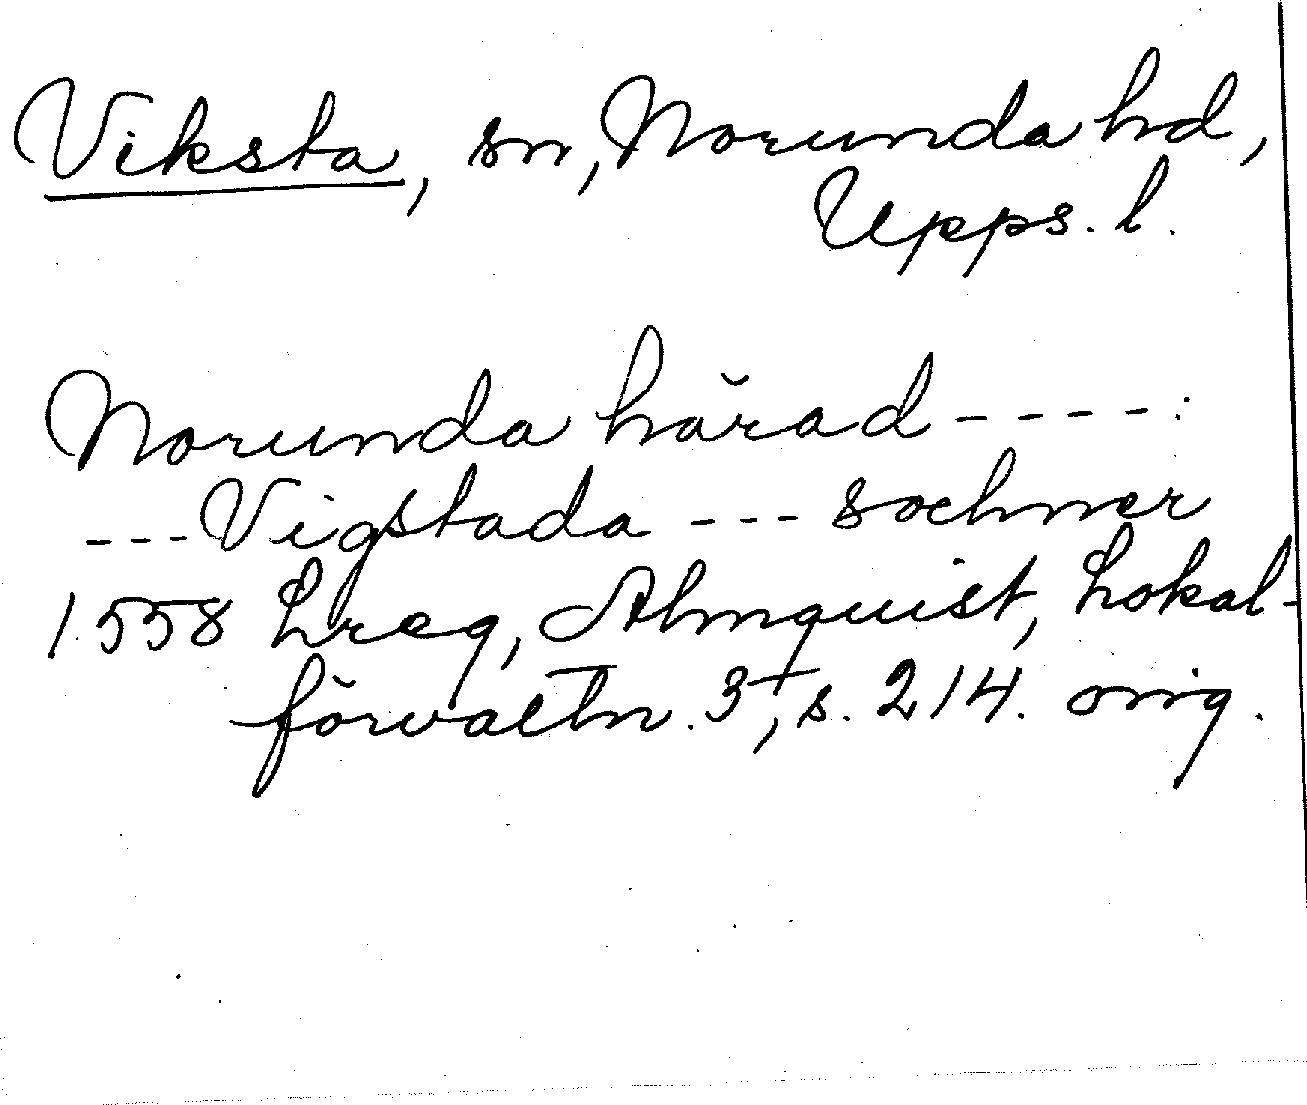 Viksta, sn, Norunda hd,
Upps. l.
Norunda härad ----:
---Vigstada --- sochner
1558 Lreg, Almquist, Lokal-
förvaltn. 3, s. 214. orig.